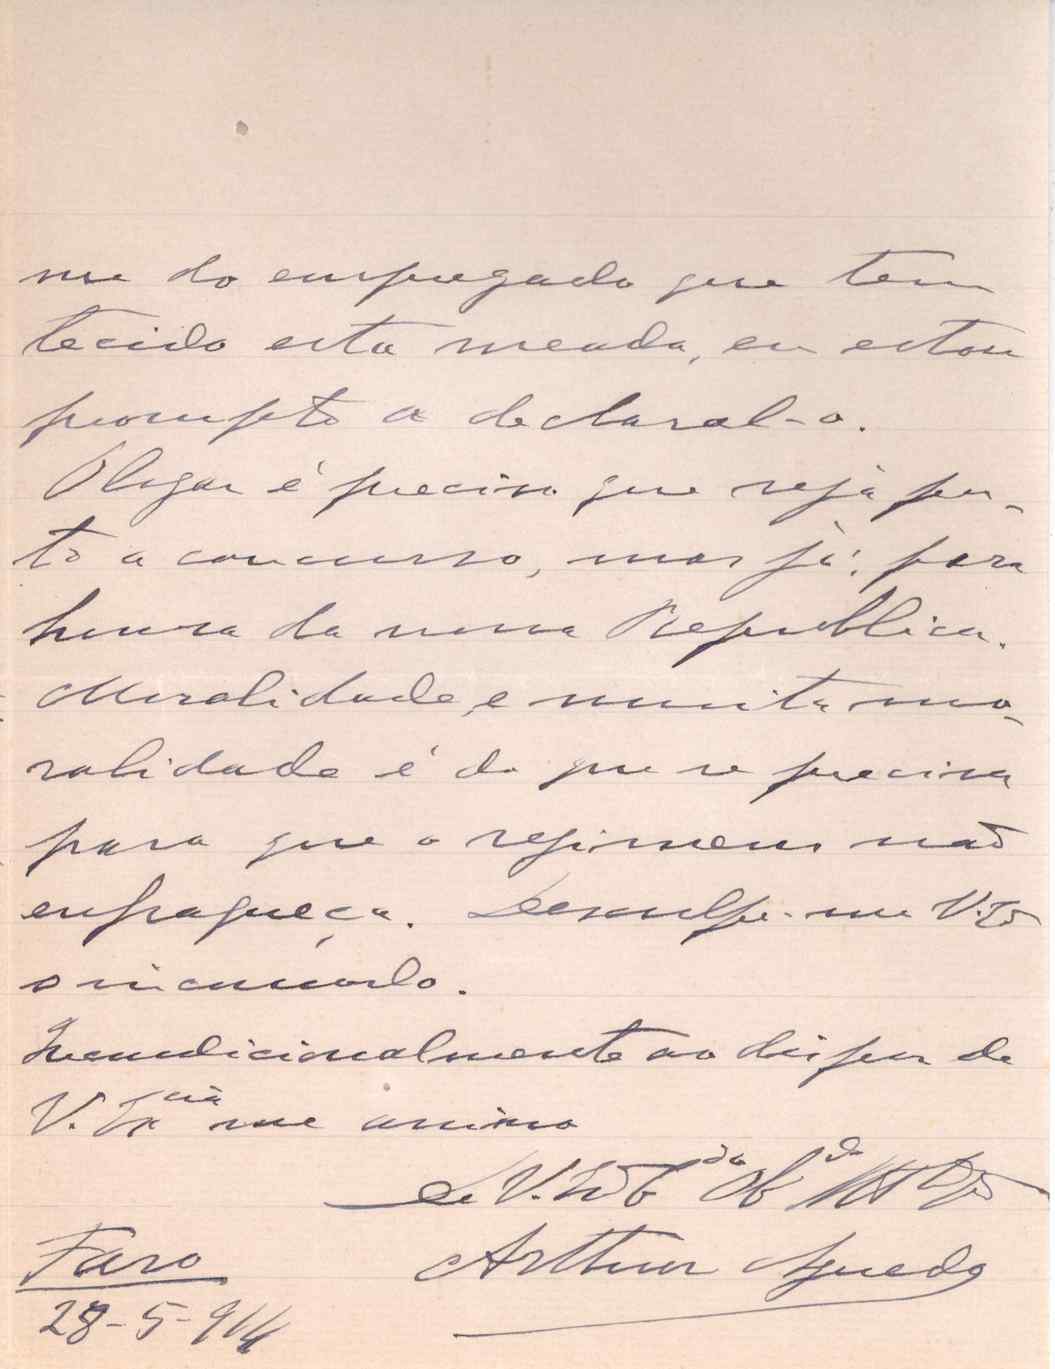 me do empregado que tem
tecido esta meada, eu estou
prompto a declaral-o.
O logar é preciso que seja pos-
to a concurso, mas já; para
honra da nossa Republica.
Moralidade, e muita mo-
ralidade é do que se precisa
para que o regimem não
enfraqueça. Desculpe-me V. Ex
o incomodo.
Incondicionalmente ao dispor de
V. Excia me assino
De V. Ex
Arthur Aguedo
Faro
28-5-914